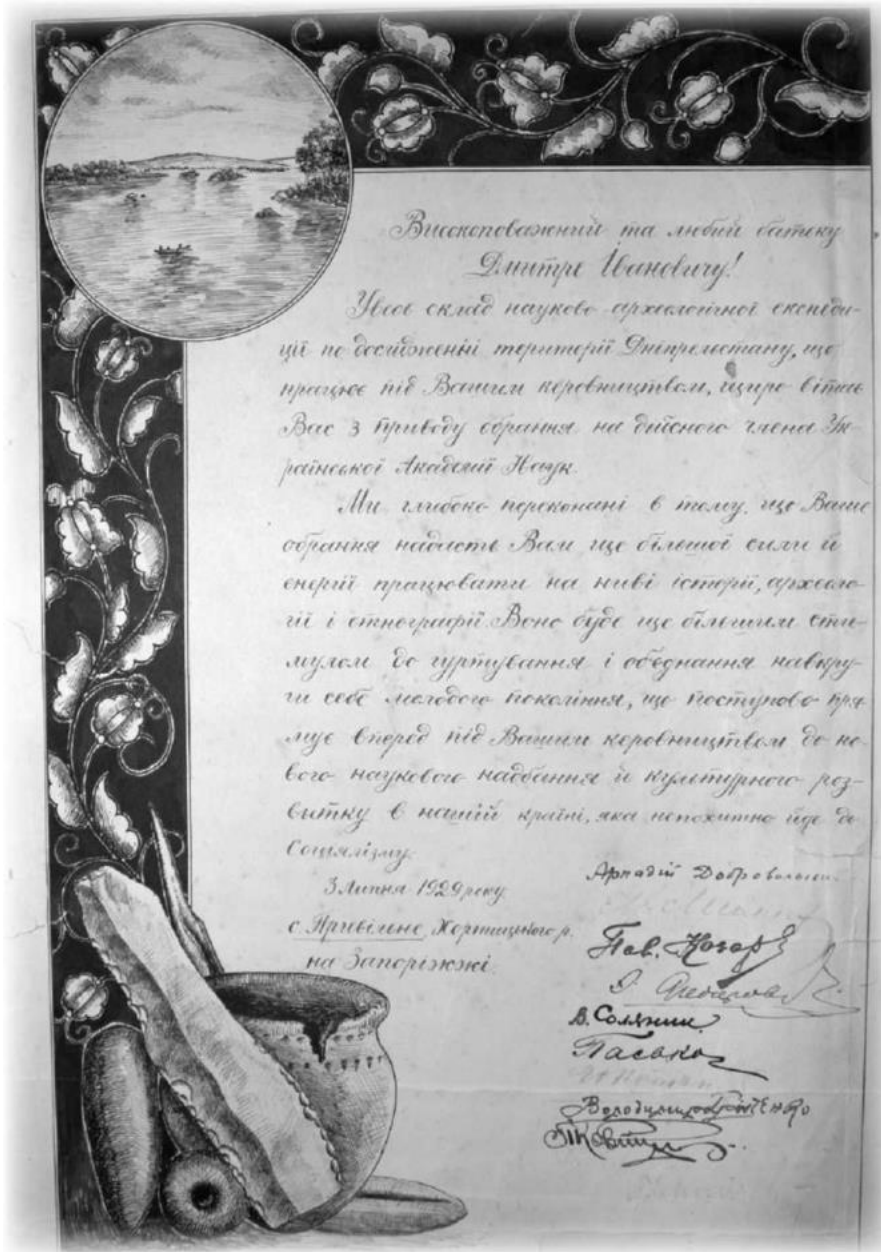 Високоповажний та любий батьку
Дмитре Івановичу!
Увесь склад науково-археологічної експеди-
ції по досліженні території Дніпрельстану, що
працює під Вашим керовництвом, щиро вітає
Вас з приводу обрання на дійсного члена Ук-
раїнської Академії Наук.
Ми глибоко переконані в тому, що Ваше
обрання надасть Вам ще більшої сили й
енергії працювати на ниві історії, археоло-
гії і етнографії. Воно буде ще більшим сти-
мулом до гуртування і об'єднання навкру-
ги себе молодого покоління, що поступово пря-
мує вперед під Вашим керовництвом до но-
вого наукового надбання й культурного роз-
витку в нашій країні, яка непохитно йде до
Соціялізму.
3 Липня 1929 року
с. Привільне, Хортицького р.
на Запоріжжі.
Аркадій Добровольський
Пав. Козар
В. Соляник
Пасько
Володимир